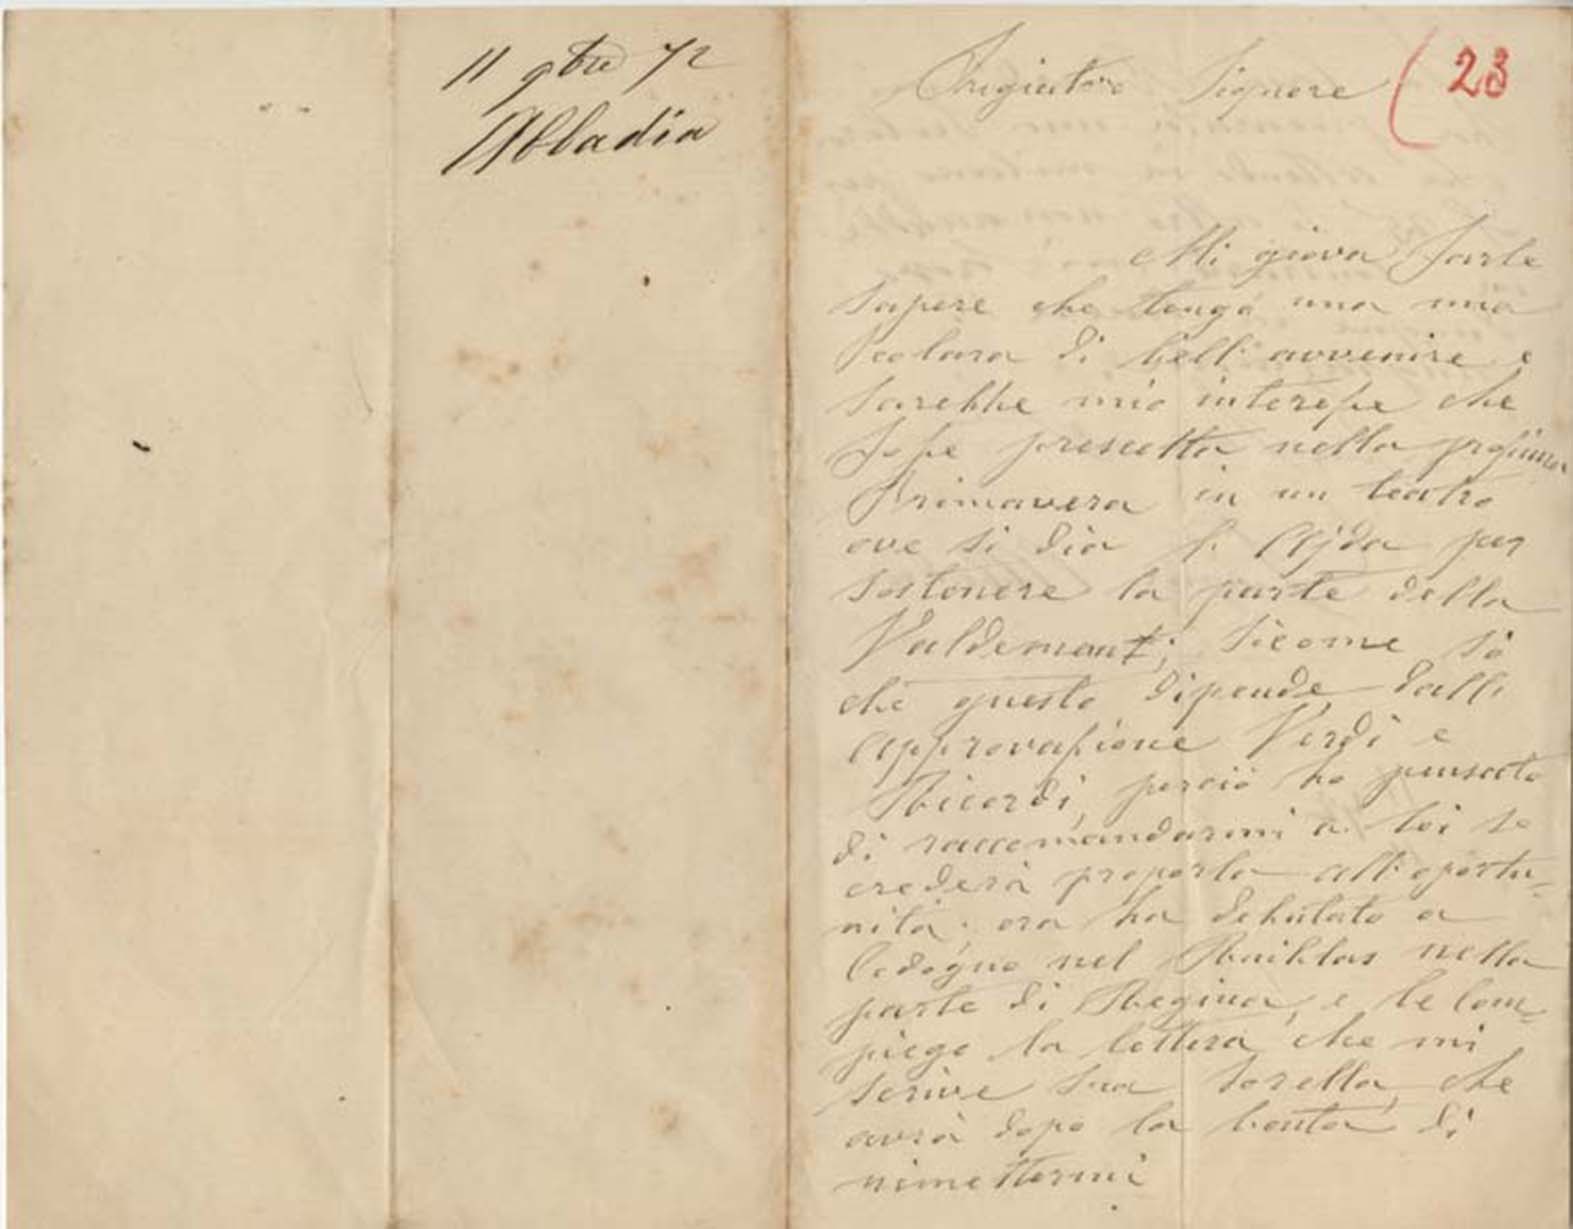 11 9bre 72
Abbadia
Pregiatmo Signore
(23
Mi giova farle
sapere che tengo una mia
scolara di bell' avvenire e
sarebbe mio interesse che
fosse prescelta nella prossima
Primavera in un teatro
ove si dia l' Ajda per
sostenere la parte della
Valdemant; sicome sò
che questo dipende dall'
approvazione Verdi e
Ricordi, perciò ho pensato
di raccomandarmi a lei se
crederà proporla all' oportu=
nità; ora ha debutato a
Codogno nel Ruiblas nella
parte di Regina, e le com=
piego la lettera che mi
scrive sua sorella, che
avrà dopo la bontà di
rimettermi